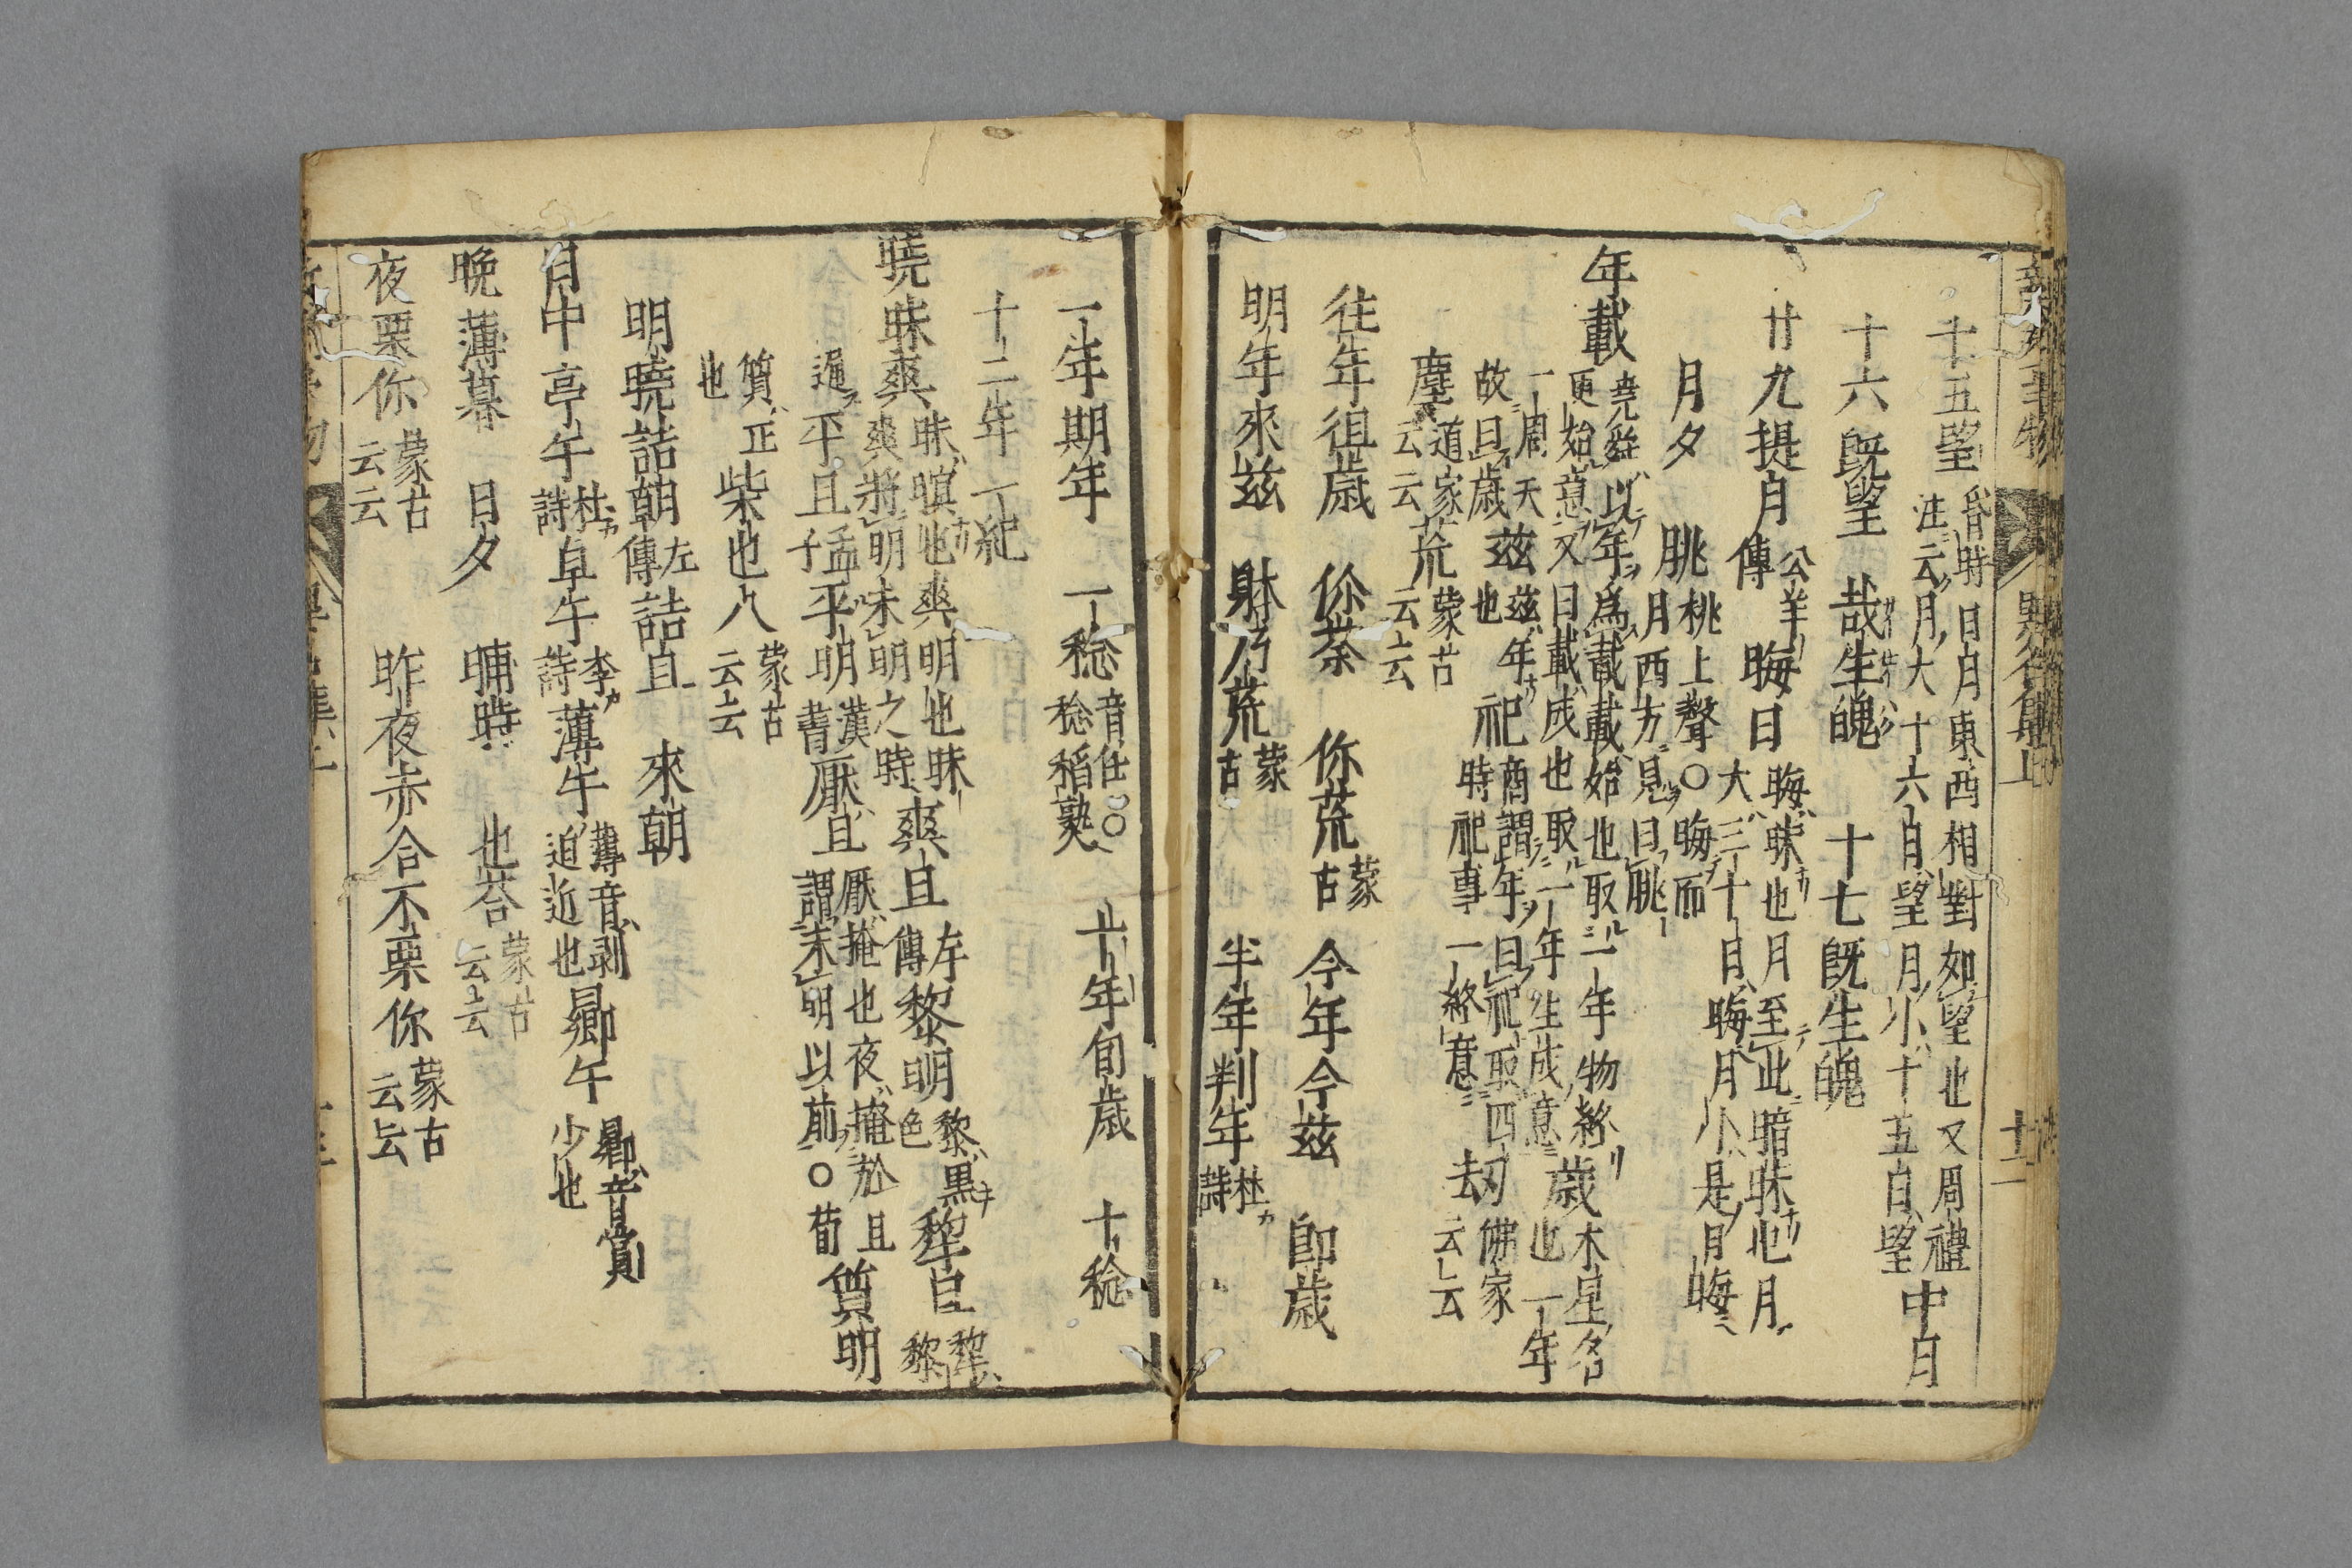 十五望 昏時日月東西相對如望也又周禮
注云月大十六日望月小十五日望 中月
十六既望 哉生魄 十七既生魄
廿九提月 公羊傳 晦日 晦昧也月至此暗昧也月
大三十日晦月小是月晦
月夕 朓 桃上聲○晦而
月西方見曰朓
年載 堯舜以年爲載載始也取一年物終
更始意又曰載成也取一年生成意 歲 木星名
也一年
一周天
故曰歲 茲 茲年
也 祀 商謂年曰祀取四
時祀事一終意 刧 佛家
云云
塵 道家
云云 荒 蒙古
云云
往年徂歲 你荼 你荒 蒙古 今年今茲 即歲
明年來茲 財乃荒 蒙古 半年判年 杜詩
一年期年 一稔 音任○
稔稻熟 十年旬歲 十稔
十二年一紀
曉昧爽 昧暝也爽明也昧
爽將明未明之時 爽旦 左傳 黎明 黎黑
色 犂旦 犂
黎
遲平旦 孟子 平明 漢書 厭旦 厭掩也夜掩於旦
謂未明以前○荀 質明
質正
也 柴也八 蒙古
云云
明曉詰朝 左傳 詰旦 來朝
日中亭午 杜詩 卓午 李詩 薄午 薄音剥
迫近也 曏午 曏音賞
少也
晚薄暮 日夕 晡時 也荅 蒙古
云云
夜栗你 蒙古
云云 昨夜赤合不栗你 蒙古
云云